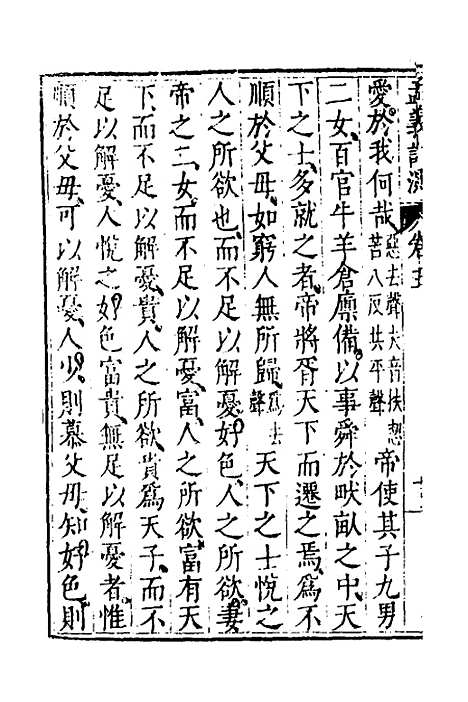 孟義訂測 卷五
愛於我何哉惡去聲夫音扶恝苦八反共平聲帝使其子九男
二女百官牛羊倉廩備以事舜於畎畝之中天
下之士多就之者帝將胥天下而遷之焉爲不
順於父母如窮人無所歸爲去聲天下之士悅之
人之所欲也而不足以解憂好色人之所欲妻
帝之二女而不足以解憂富人之所欲富有天
下而不足以解憂貴人之所欲貴爲天子而不
足以解憂人悅之好色富貴無足以解憂者惟
順於父母可以解憂人少則慕父母知好色則